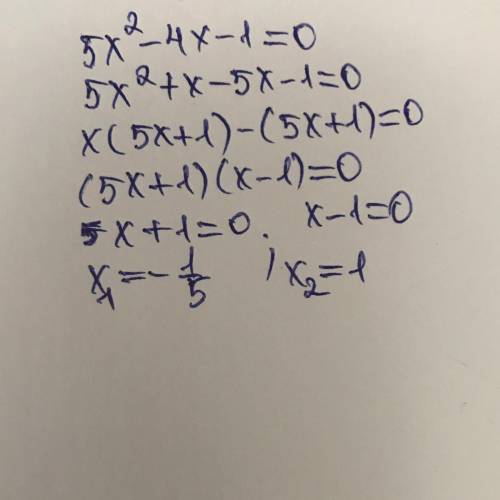 5x² - 4x - 1 = 0
5x² + x - 5x - 1 = 0
x(5x+1) - (5x+1) = 0
(5x+1)(x-1) = 0
5x + 1 = 0. x - 1 = 0
x₁ = - 1/5 ; x₂ = 1